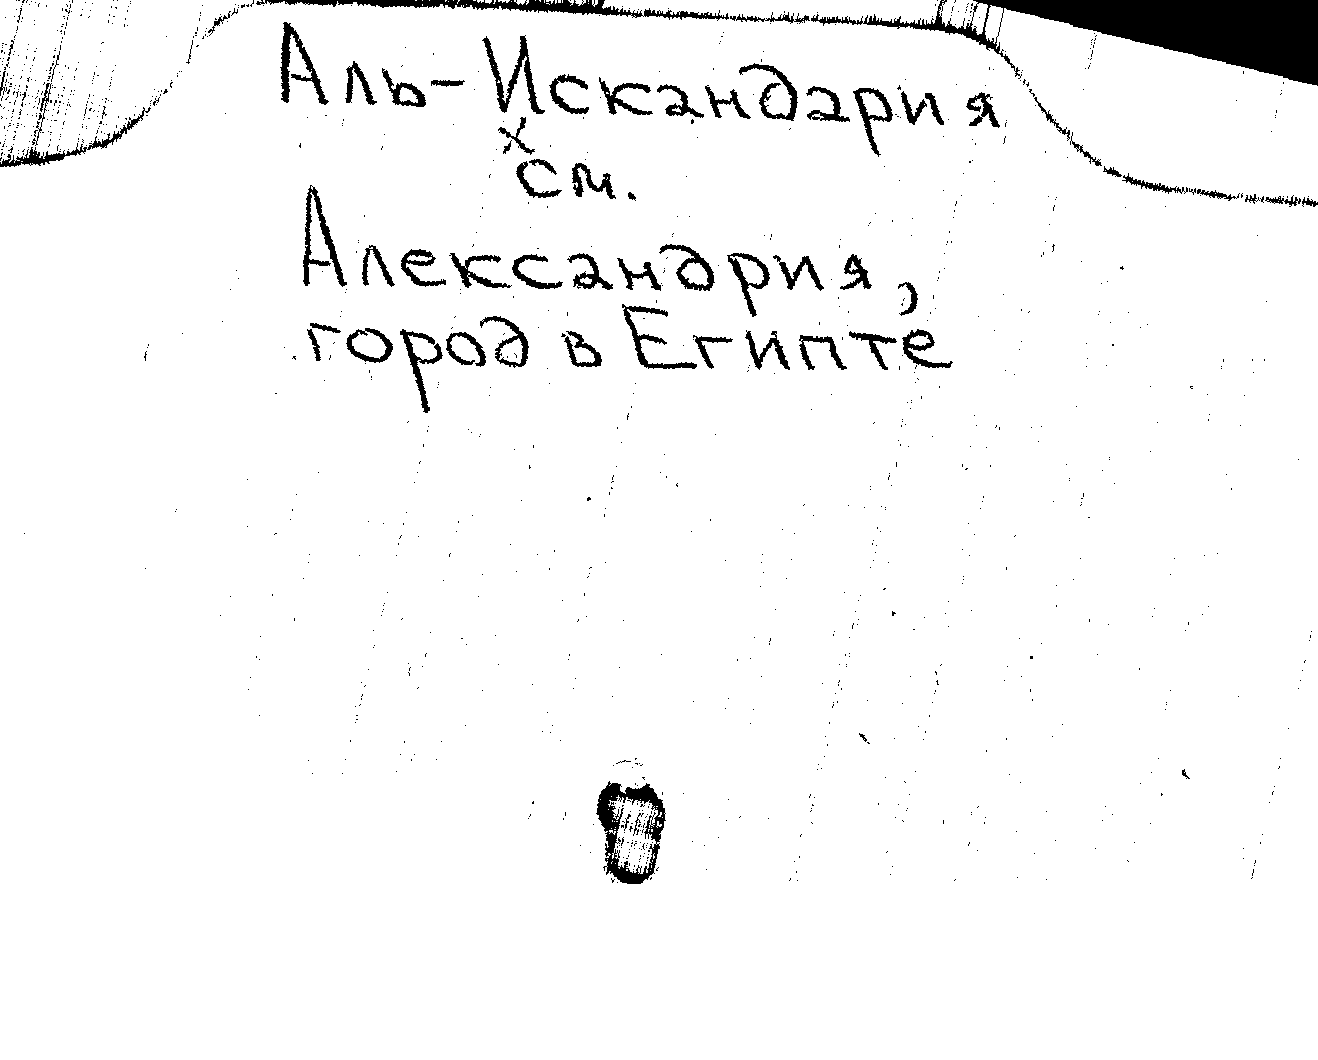 Аль-Искандария
х
см.
Александрия,
город в Египте